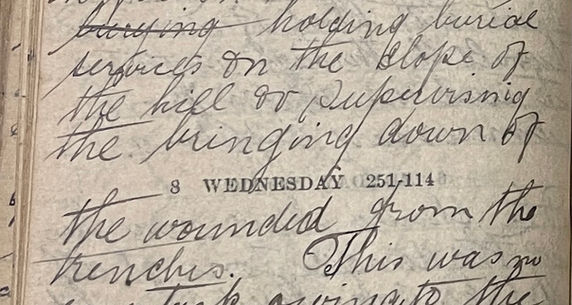 burying holding burial
services on the slope of
the hill or supervising
the bringing down of
8 WEDNESDAY 251-114
the wounded from the
trenches. This was no
task owing to the